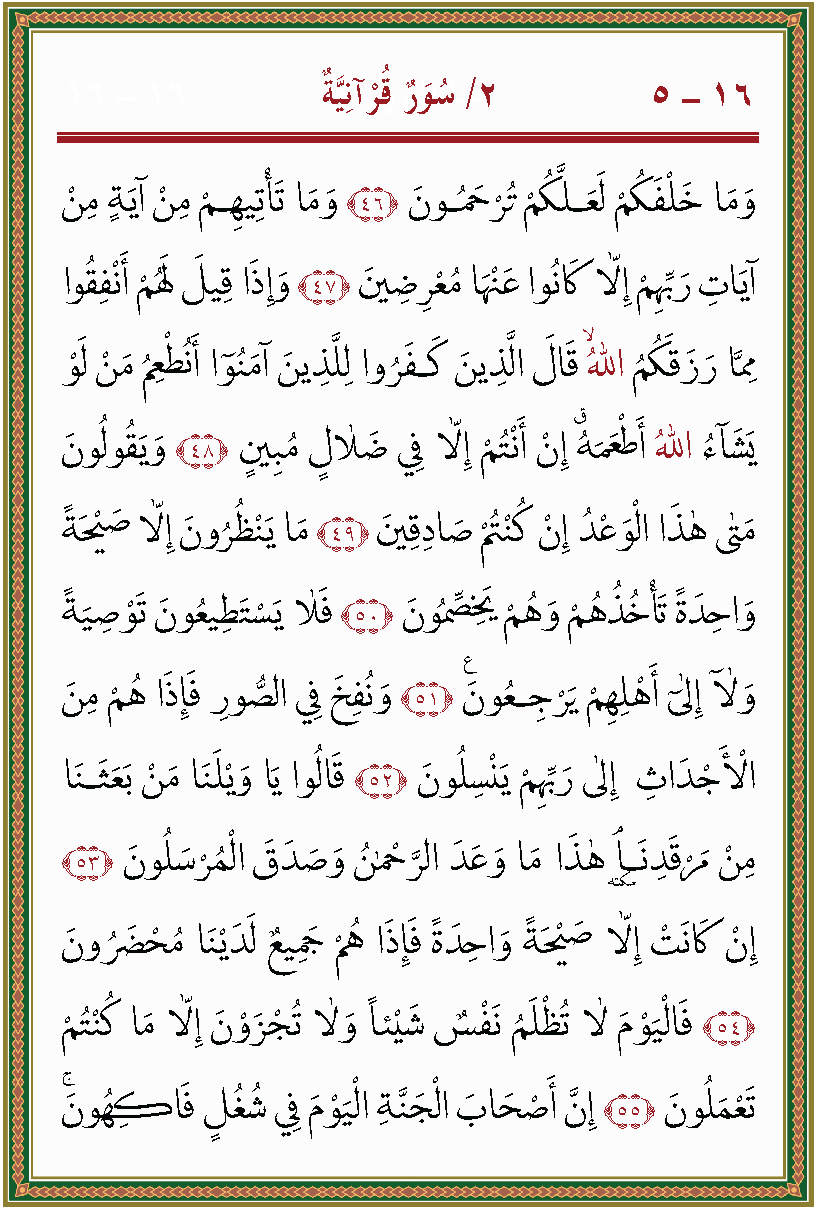 ١٦ – ٥ ٢/ سُوَرٌ قُرْآنِيَّةٌ ١٦ – ١٦
وَمَا خَلْفَكُمْ لَعَلَّكُمْ تُرْحَمُونَ ﴿٤٦﴾ وَمَا تَأْتِيهِمْ مِنْ آيَةٍ مِنْ
آيَاتِ رَبِّهِمْ إِلَّا كَانُوا عَنْهَا مُعْرِضِينَ ﴿٤٧﴾ وَإِذَا قِيلَ لَهُمْ أَنْفِقُوا
مِمَّا رَزَقَكُمُ اللهُ ۙ قَالَ الَّذِينَ كَفَرُوا لِلَّذِينَ آمَنُوٓا أَنُطْعِمُ مَنْ لَوْ
يَشَآءُ اللهُ أَطْعَمَهُ ۗ إِنْ أَنْتُمْ إِلَّا فِي ضَلٰالٍ مُبِينٍ ﴿٤٨﴾ وَيَقُولُونَ
مَتٰى هٰذَا الْوَعْدُ إِنْ كُنْتُمْ صَادِقِينَ ﴿٤٩﴾ مَا يَنْظُرُونَ إِلَّا صَيْحَةً
وَاحِدَةً تَأْخُذُهُمْ وَهُمْ يَخِصِّمُونَ ﴿٥٠﴾ فَلٰا يَسْتَطِيعُونَ تَوْصِيَةً
وَلٰآ إِلٰٓى أَهْلِهِمْ يَرْجِعُونَ ﴿٥١﴾ وَنُفِخَ فِي الصُّورِ فَإِذَا هُمْ مِنَ
الْأَجْدَاثِ إِلٰى رَبِّهِمْ يَنْسِلُونَ ﴿٥٢﴾ قَالُوا يَا وَيْلَنَا مَنْ بَعَثَنَا
مِنْ مَرْقَدِنَا هٰذَا مَا وَعَدَ الرَّحْمٰنُ وَصَدَقَ الْمُرْسَلُونَ ﴿٥٣﴾
إِنْ كَانَتْ إِلَّا صَيْحَةً وَاحِدَةً فَإِذَا هُمْ جَمِيعٌ لَدَيْنَا مُحْضَرُونَ
﴿٥٤﴾ فَالْيَوْمَ لٰا تُظْلَمُ نَفْسٌ شَيْئاً وَلٰا تُجْزَوْنَ إِلَّا مَا كُنْتُمْ
تَعْمَلُونَ ﴿٥٥﴾ إِنَّ أَصْحَابَ الْجَنَّةِ الْيَوْمَ فِي شُغُلٍ فَاكِهُونَ ۚ